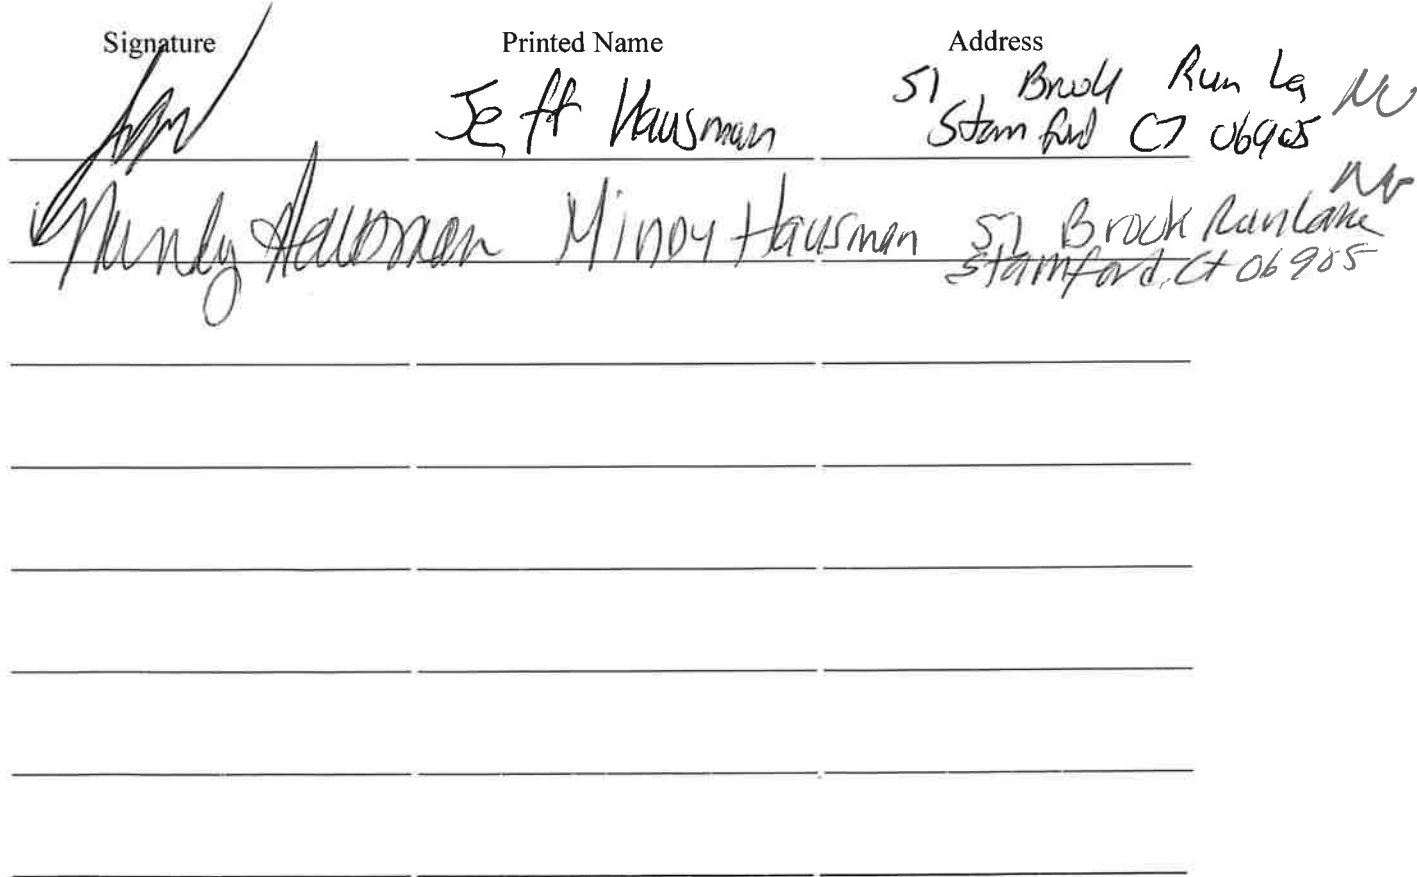 Signature Printed Name Address
Jeff Hausman 51 Brook Run La
Stamford CT 06905
Mindy Hausman Mindy Hausman 51 Brook Run Lane
Stamford, Ct 06905